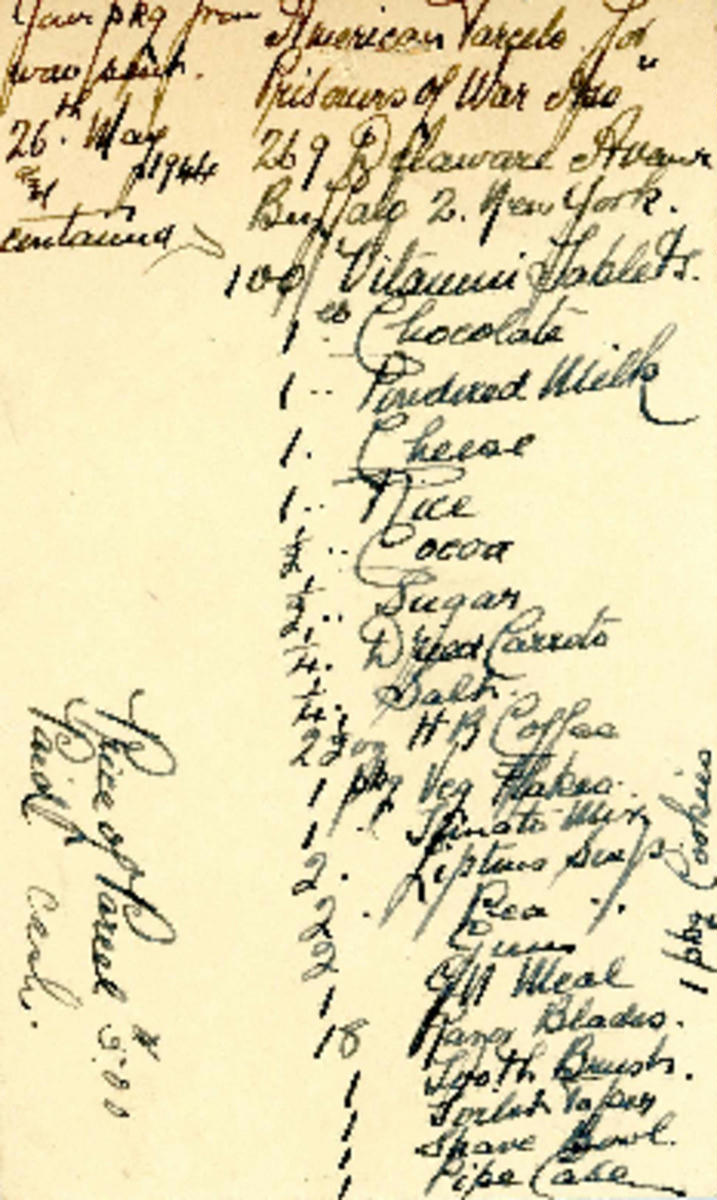 Your pkg from
was sent.
26th May
1944
contained
American Parcels for
Prisoners of War Inc"
269 Delaware Avenue
Buffalo 2. New York.
100 Vitamin Tablets.
1 Chocolate
1 .. Powdered Milk
1. Cheese
1 .. Rice
1/2 .. Cocoa
1/2 .. Sugar
1/4. Dried Carrots
1/4. Salt.
oz HB Coffee
1 pkg Veg Flakes.
1 Tomato Mix
2. Liptons Soup
2 . Pea ".
2 Gum
1 Meal
18 Razor Blades.
1 Tooth Brush.
1 Toilet Paper
1 Shave Bowl.
1 Pipe Case
1 pkg Cookies
Price of Parcel $5.00
Paid Cash.